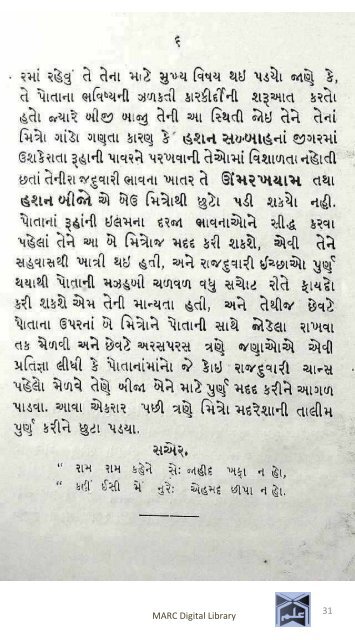 ૬
રમાં રહેવું તે તેના માટે મુખ્ય વિષય થઇ પડયો જાણે કે,
તે પોતાના ભવિષ્યની ઝળકતી કારકીર્દીની શરૂઆત કરતો
હતો જ્યારે બીજી બાજુ તેની આ સ્થિતી જોઇ તેને તેનાં
મિત્રો ગાંડો ગણતા કારણ કે હશન સબ્બાહનાં જીગરમાં
ઉશકેરાતા રૂહાની પાવરને પરખવાની તેઓમાં વિશાળતા નહોતી
છતાં તેની રાજદુવારી ભાવના ખાતર તે ઊંમરખયામ તથા
હશન બીજો એ બેઉ મિત્રોથી છુટો પડી શકયો નહી.
પોતાનાં રૂહાંની ઇલમના દરજા ભાવનાઓને સીદ્ધ કરવા
પહેલાં તેને આ બે મિત્રોજ મદદ કરી શકશે, એવી તેને
સહવાસથી ખાત્રી થઇ હતી, અને રાજદુવારી ઈચ્છાઓ પુર્ણ
થયાથી પોતાની મઝહબી ચળવળ વધુ સચોટ રીતે ફાયદો
કરી શકશે એમ તેની માન્યતા હતી, અને તેથીજ છેવટે
પોતાના ઉપરનાં બે મિત્રોને પોતાની સાથે જોડેલા રાખવા
તક મેળવી અને છેવટે અરસપરસ ત્રણે જણાઓએ એવી
પ્રતિજ્ઞા લીધી કે પોતાનાંમાંનો જે કોઇ રાજદુવારી ચાન્સ
પહેલો મેળવે તેણે બીજા બેને માટે પુર્ણ મદદ કરીને આગળ
પાડવા. આવા એકરાર પછી ત્રણે મિત્રો મદરેશાની તાલીમ
પુર્ણ કરીને છુટા પડયા.
સએર.
“ રામ રામ કહેને સેઃ જાહીદ ખફા ન હો,
“ કહીં ઈસી મેં નુરેઃ એહમદ છીપા ન હો.
MARC Digital Library
31